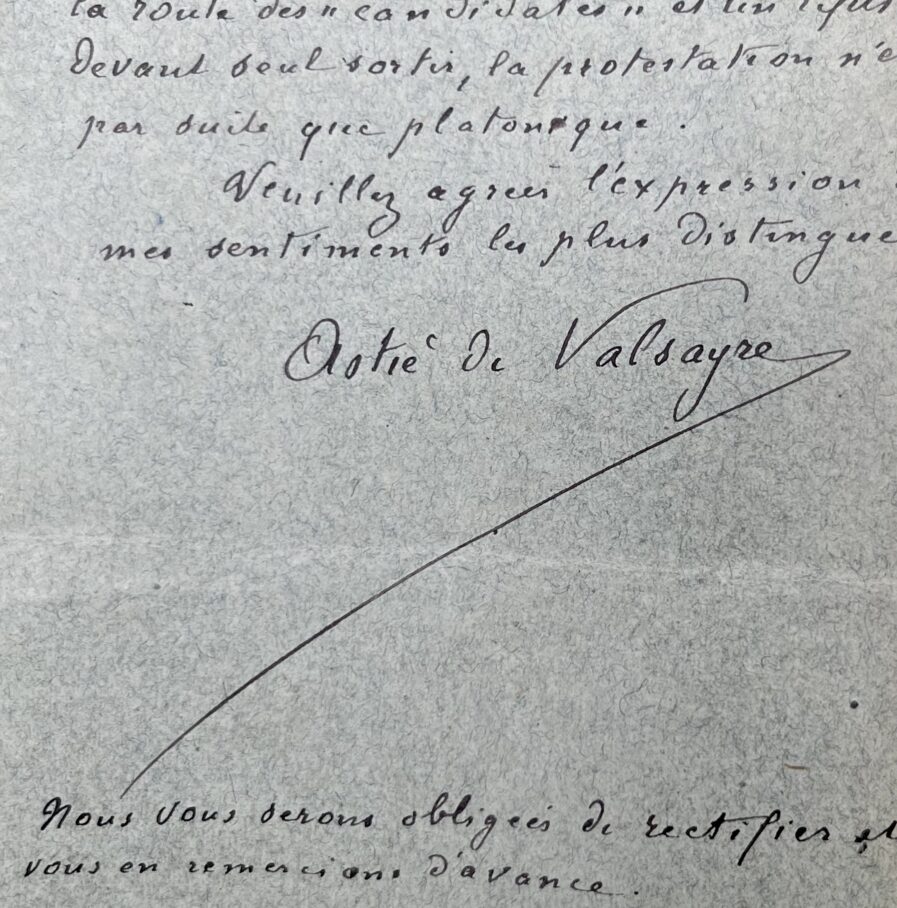 la route des "candidates" et un refus
devant seul sortir, la protestation n'e
par suite que platonique.
Veuillez agréer l'expression
mes sentiments les plus distingue
Astié de Valsayre
Nous vous serons obligées de rectifier et
vous en remercions d'avance.